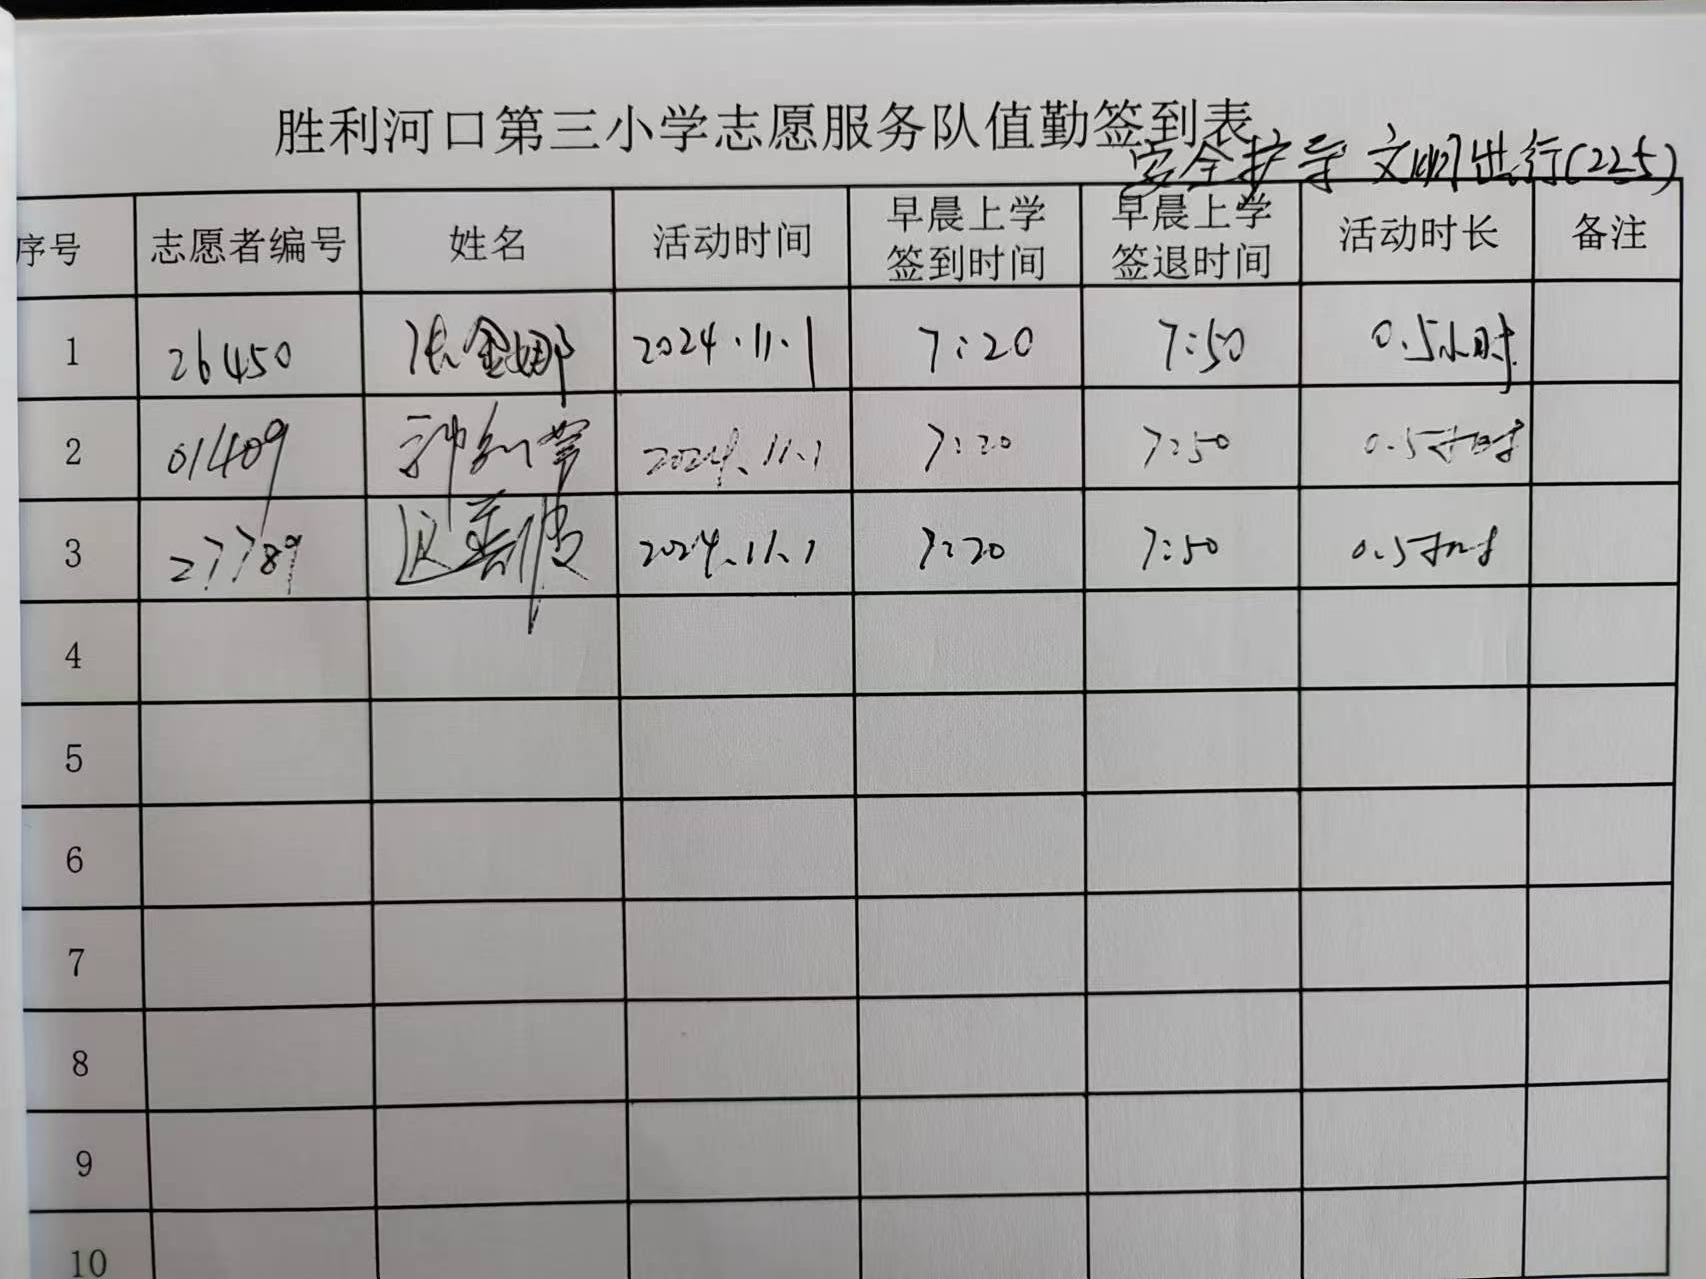 胜利河口第三小学志愿服务队值勤签到表
安全护导 文明出行(225)
序号 志愿者编号 姓名 活动时间 早晨上学签到时间 早晨上学签退时间 活动时长 备注
1 26450 张金娜 2024.11.1 7:20 7:50 0.5小时
2 01409 2024.11.1 7:20 7:50 0.5小时
3 27789 2024.11.1 7:20 7:50 0.5小时
4
5
6
7
8
9
10